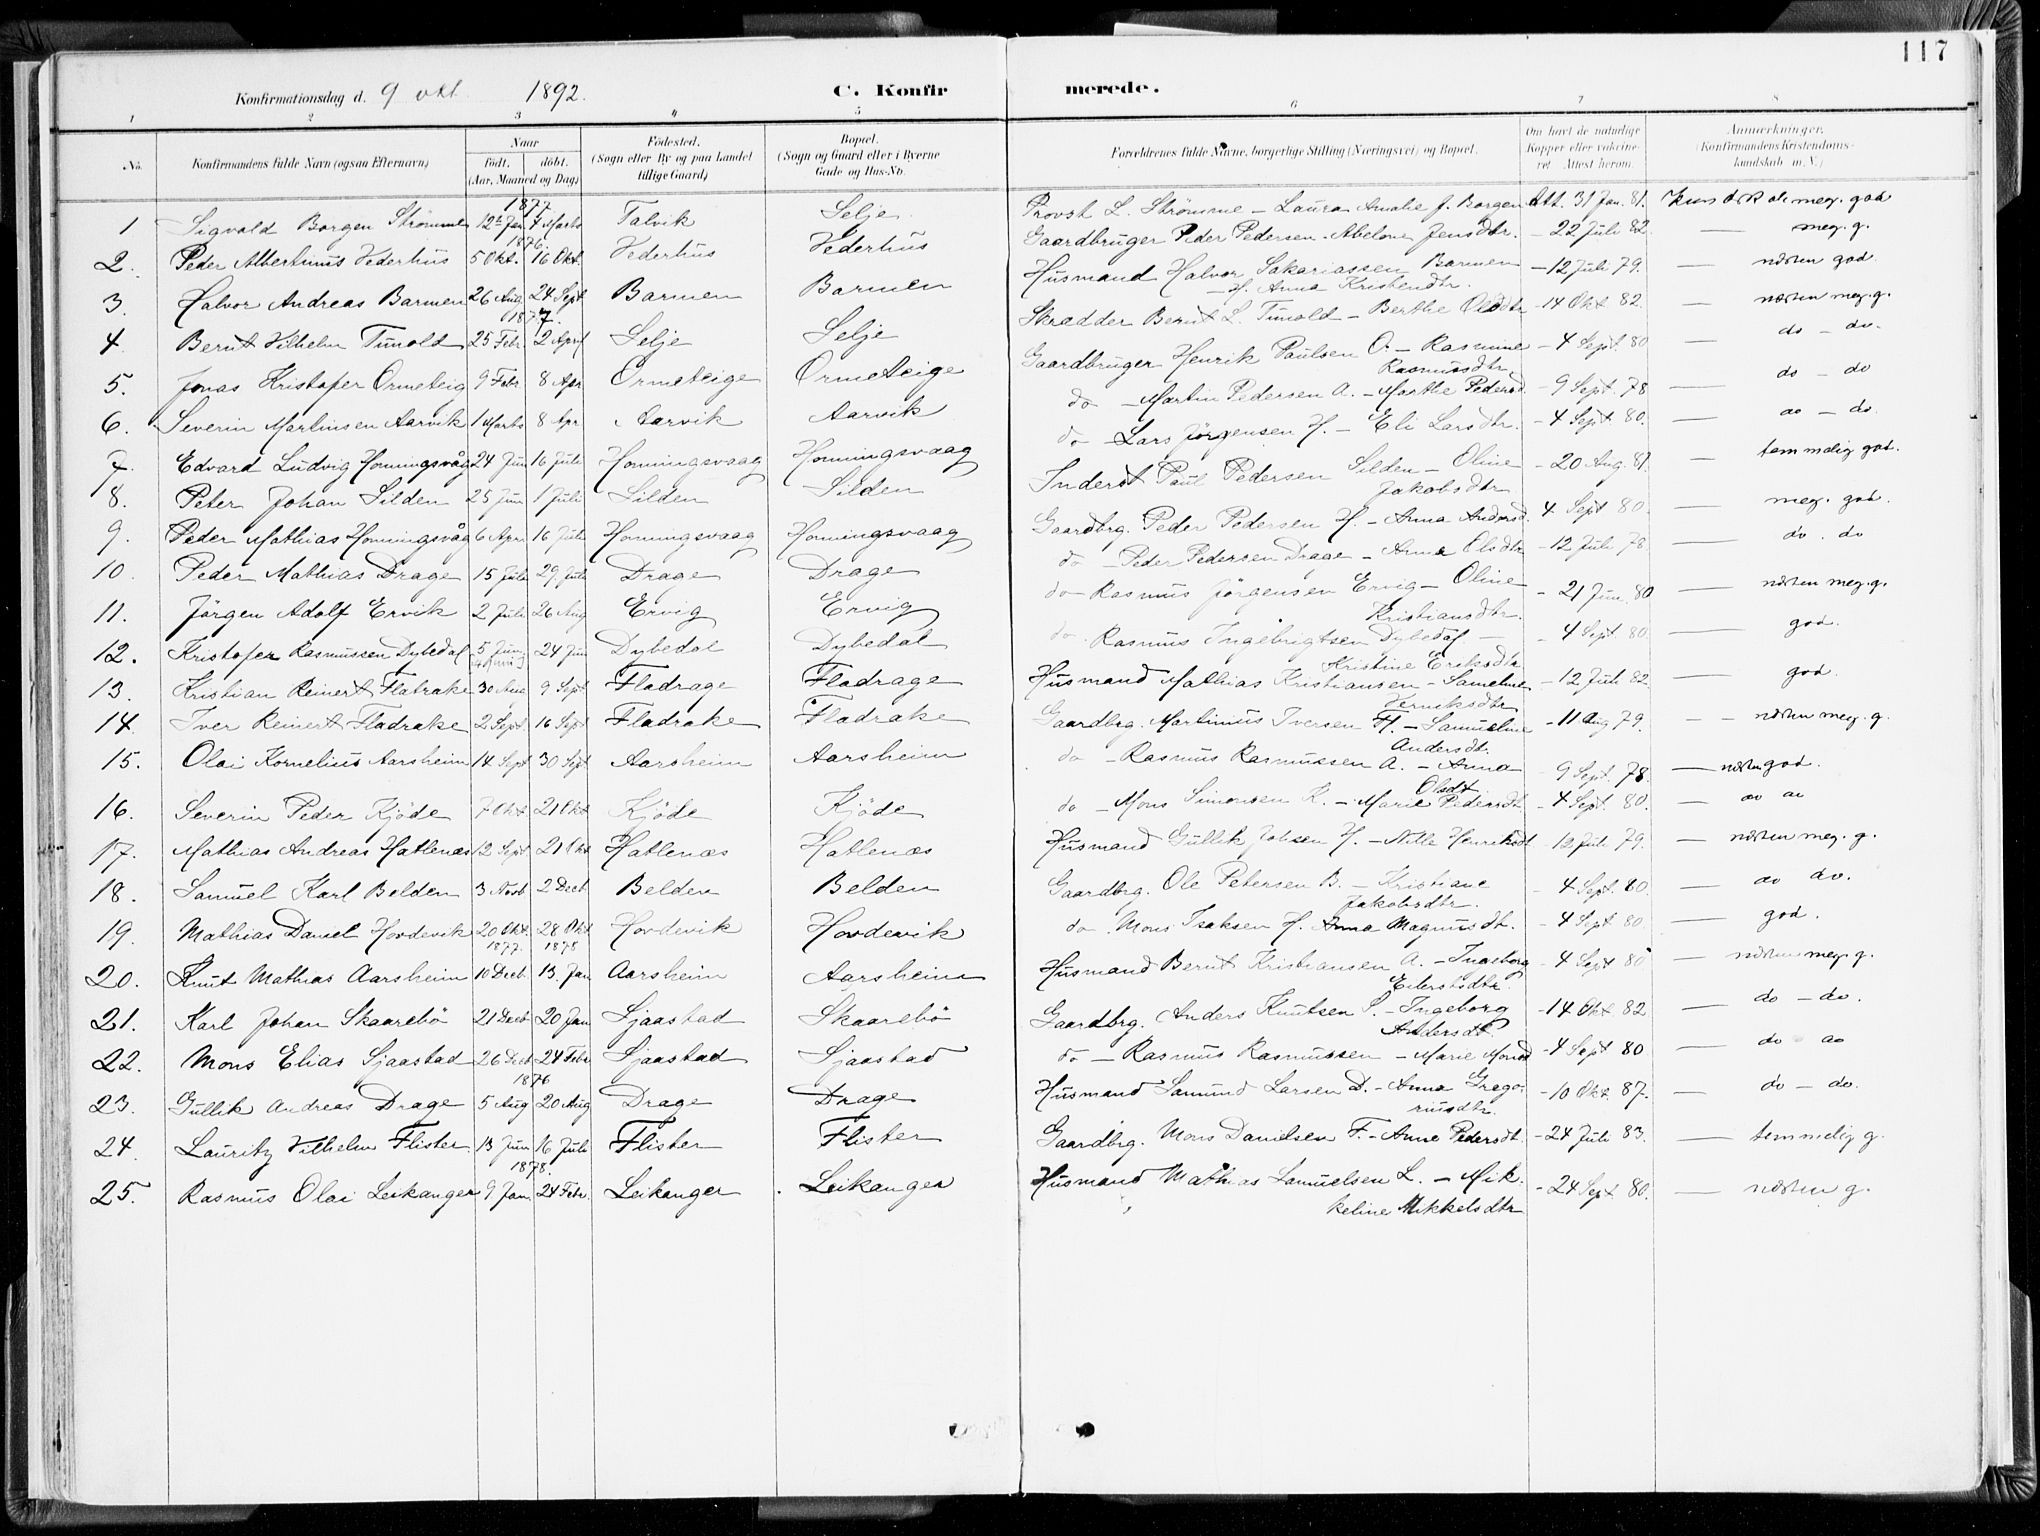 117
Konfirmationsdag d. 9 okt. 1892. C. Konfirmerede.
1 2 3 4 5 6 7 8
No. Konfirmandens fulde Navn (ogsaa Efternavn) Naar født, døbt. (Aar, Maaned og Dag) Fødested. (Sogn eller By og paa Landet tillige Gaard) Bopæl. (Sogn og Gaard eller i Byerne Gade og Hus-No. Forældrenes fulde Navne, borgerlige Stilling (Næringsvei) og Bopæl. Om havt de naturlige Kopper eller vakcineret. Attest herom. Anmærkninger. (Konfirmandens Kristendomskundskab m. V.)
1877
1 Sigvald Borgen Strömme 12te Jan 7 Marts Talvik Selje Provst L. Strömme - Laura Amalie f. Borgen Att. 31 Jan. 81. Kundsk. meg. god
1876.
2. Peder Albertinus Hederhus 5 Okt. 16 Okt. Hederhus Hederhus Gaardbruger Peder Pedersen - Abelone Jensdtr. - 22 Juli 82. — meg. g.
3. Halvor Andreas Barmen 26 Aug. 24 Sept Barmen Barmen Husmand Halvor Sakariassen Barmen - Anna Kristensdtr. - 12 Juli 79. — næsten god
1877.
4. Bernt Vilhelm Tunold 25 Febr. 2 April Selje Selje Skrædder Bernt L. Tunold - Berthe Olsdtr - 14 Okt 82. — næsten meg. g.
5. Jonas Kristofer Ormeteig 9 Febr 8 Apr Ormeteige Ormeteige Gaardbruger Henrik Paulsen O. - Rasmine Rasmusdtr - 4 Sept. 80 — do - do.
6. Severin Martinsen Aarvik 1 Marts 8 Apr Aarvik Aarvik do - Martin Pedersen A. - Marthe Pedersd - 9 Sept. 78 — do - do
7. Edvard Ludvig Honningsvåg 24 Jun 16 Juli Honningsvaag Honningsvaag do - Lars Jörgensen H. - Eli Larsdtr. - 4 Sept. 80. — do - do.
8. Peter Johan Silden 25 Jun 1 Juli Silden Silden Inderst Paul Pedersen Silden - Oline Jakobsdtr - 20 Aug. 81. — temmelig god.
9. Peder Mathias Honningsvåg 6 Apr. 16 Juli Honningsvaag Honningsvaag Gaardbrg. Peder Pedersen H. - Anna Andersd. 4 Sept 80. — meg. god.
10. Peder Mathias Drage 15 Juli 29 Juli Drage Drage do - Peder Pedersen Drage - Anne Olsdtr - 12 Juli 78. — do. do
11. Jörgen Adolf Ervik 2 Juli 26 Aug Ervig Ervig do - Rasmus Jörgensen Ervig - Oline Kristiansdtr. - 21 Jun. 80 — næsten meg. g.
12. Kristofer Rasmussen Dybedal 5 Jun. 24 Jun Dybedal Dybedal do. Rasmus Ingebrigtsen Dybedal - Kristine Eriksdtr - 4 Sept. 80. — god.
13. Kristian Reinert Flatrake 30 Aug 9 Sept Fladrage Fladrage Husmand Mathias Kristiansen - Sameline Henriksdtr - 12 Juli 82. — god.
14. Iver Reinert Fladrake 2 Sept. 16 Sept Fladrake Fladrake Gaardbrg. Martinius Iversen Fl. - Samueline Andersdt. - 11 Aug 79. — næsten meg. g.
15. Olai Kornelius Aarsheim 14 Sept 30 Sept Aarsheim Aarsheim do - Rasmus Rasmussen A. - Anna Olsdt - 9 Sept. 78. — næsten god.
16. Severin Peder Kjöde 7 Okt 21 Okt Kjöde Kjöde do - Mons Simonsen K. - Marie Pedersdt - 4 Sept. 80. — do do
17. Mathias Andreas Hatlenæs 12 Sept 21 Okt Hatlenæs Hatlenæs Husmand Gullik Johsen H. - Nille Henriksdt - 12 Juli 79. — næsten meg. g.
18. Samuel Karl Belden 3 Novb 2 Decb Belden Belden Gaardbrg. Ole Petersen B. - Kristiane Jakobsdtr. - 4 Sept. 80. — do do.
19. Mathias Daniel Hovdevik 20 Okt. 28 Okt Hovdevik Hovdevik do. Mons Isaksen H. Anna Magnusdt. - 4 Sept. 80. — god.
1877. 1878
20. Knut Mathias Aarsheim 10 Decb 13. Jan Aarsheim Aarsheim Husmand Bernt Kristiansen A. - Ingeborg Eilertsdtr. - 4 Sept 80 — næsten meg. g.
21. Karl Johan Skaarebö 21 Decb 20 Jan Sjaastad Skaarebö Gaardbrg. Anders Knutsen S. - Ingeborg Andersdt. - 14 Okt. 82 — do - do.
22. Mons Elias Sjaastad 26 Decb 24 Febr Sjaastad Sjaastad do - Rasmus Rasmussen - Marie Monsd - 4 Sept 80 — do do
1876
23. Gullik Andreas Drage 5 Aug 20 Aug Drage Drage Husmand Samund Larsen D. - Anna Gregoriusdtr. - 10 Okt. 87. — do - do.
24. Lauritz Vilhelm Flister 13 Jun 16 Juli Flister Flister Gaardbrg. Mons Danielsen F. - Anne Pedersdt. - 24 Juli 83. — temmelig g.
1878.
25. Rasmus Olai Leikanger 9 Jan. 24 Febr. Leikanger Leikanger Husmand Mathias Samuelsen L. - Mikkeline Mikkelsdtr - 24 Sept 80. — næsten g.